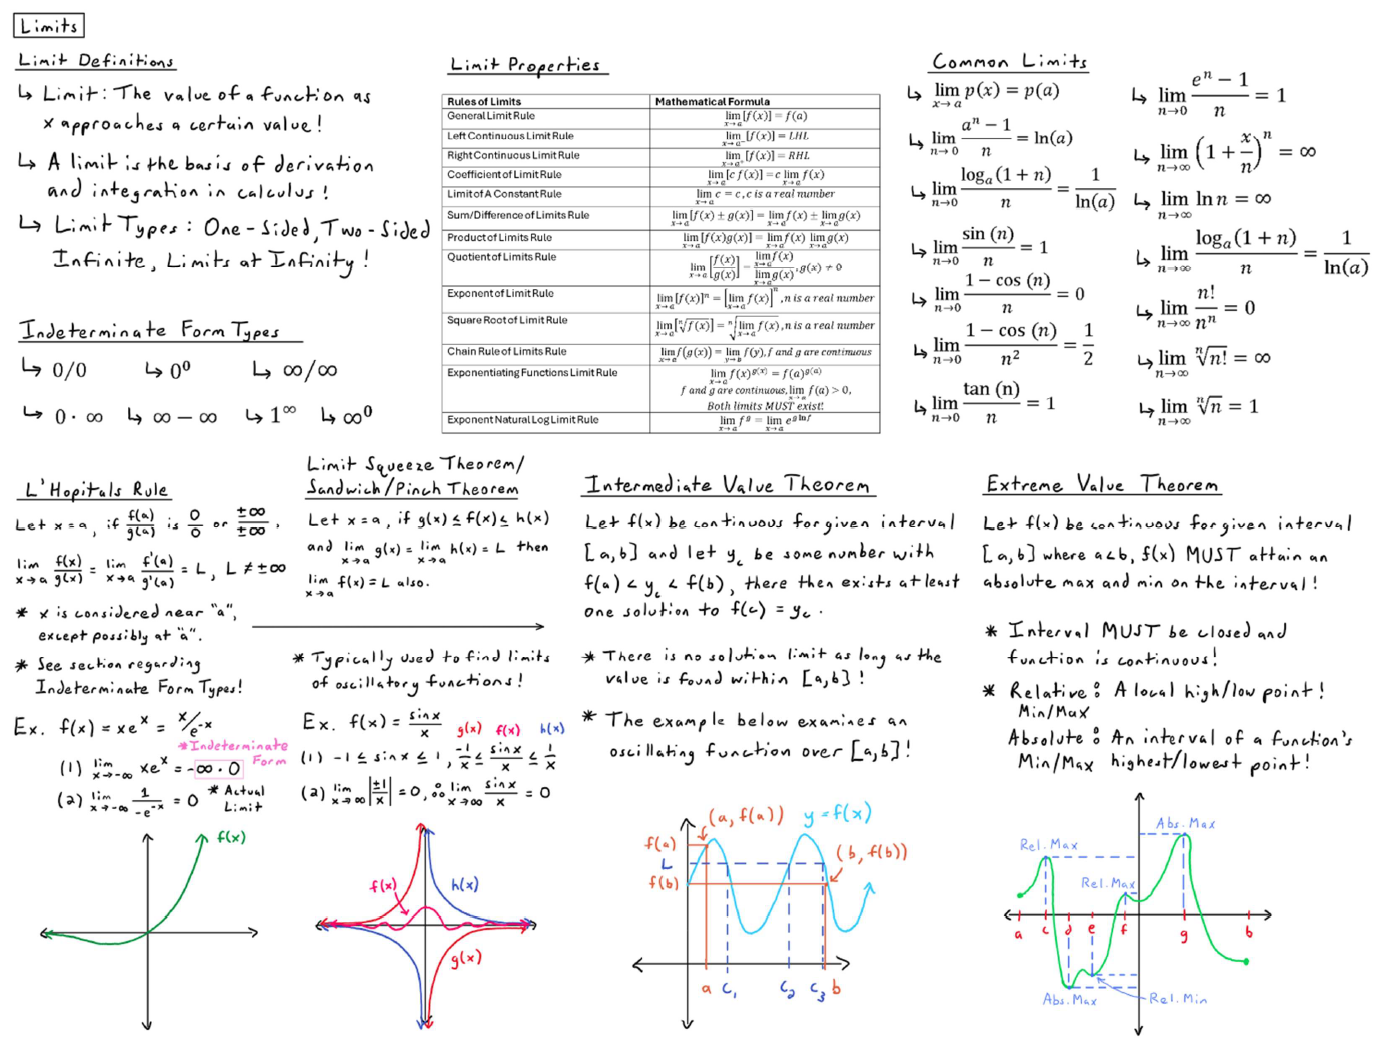 Limits
Limit Definitions
↳ Limit: The value of a function as
x approaches a certain value!
↳ A limit is the basis of derivation
and integration in calculus!
↳ Limit Types: One-Sided, Two-Sided
Infinite, Limits at Infinity!
Indeterminate Form Types
↳ 0/0 ↳ 0⁰ ↳ ∞/∞
↳ 0·∞ ↳ ∞−∞ ↳ 1^∞ ↳ ∞⁰
Limit Properties
Rules of Limits | Mathematical Formula
General Limit Rule | lim x→a [f(x)] = f(a)
Left Continuous Limit Rule | lim x→a⁻ [f(x)] = LHL
Right Continuous Limit Rule | lim x→a⁺ [f(x)] = RHL
Coefficient of Limit Rule | lim x→a [c f(x)] = c lim x→a f(x)
Limit of A Constant Rule | lim x→a c = c, c is a real number
Sum/Difference of Limits Rule | lim x→a [f(x) ± g(x)] = lim x→a f(x) ± lim x→a g(x)
Product of Limits Rule | lim x→a [f(x)g(x)] = lim x→a f(x) lim x→a g(x)
Quotient of Limits Rule | lim x→a [f(x)/g(x)] = lim x→a f(x) / lim x→a g(x), g(x) ≠ 0
Exponent of Limit Rule | lim x→a [f(x)]ⁿ = [lim x→a f(x)]ⁿ, n is a real number
Square Root of Limit Rule | lim x→a [ⁿ√f(x)] = ⁿ√(lim x→a f(x)), n is a real number
Chain Rule of Limits Rule | lim x→a f(g(x)) = lim y→b f(y), f and g are continuous
Exponentiating Functions Limit Rule | lim x→a f(x)^g(x) = f(a)^g(a)
f and g are continuous, lim x→a f(a) > 0,
Both limits MUST exist!
Exponent Natural Log Limit Rule | lim x→a f^g = lim x→a e^(g ln f)
Common Limits
↳ lim x→a p(x) = p(a)
↳ lim n→0 (aⁿ − 1)/n = ln(a)
↳ lim n→0 logₐ(1 + n)/n = 1/ln(a)
↳ lim n→0 sin (n)/n = 1
↳ lim n→0 (1 − cos (n))/n = 0
↳ lim n→0 (1 − cos (n))/n² = 1/2
↳ lim n→0 tan (n)/n = 1
↳ lim n→0 (eⁿ − 1)/n = 1
↳ lim n→∞ (1 + x/n)ⁿ = ∞
↳ lim n→∞ ln n = ∞
↳ lim n→∞ logₐ(1 + n)/n = 1/ln(a)
↳ lim n→∞ n!/nⁿ = 0
↳ lim n→∞ ⁿ√n! = ∞
↳ lim n→∞ ⁿ√n = 1
L'Hopitals Rule
Let x=a, if f(a)/g(a) is 0/0 or ±∞/±∞,
lim x→a f(x)/g(x) = lim x→a f'(a)/g'(a) = L, L ≠ ±∞
* x is considered near "a",
except possibly at "a".
* See section regarding
Indeterminate Form Types!
Ex. f(x) = xeˣ = x/e⁻ˣ
* Indeterminate
Form
(1) lim x→-∞ xeˣ = -∞·0
(2) lim x→-∞ 1/-e⁻ˣ = 0 * Actual
Limit
f(x)
Limit Squeeze Theorem/
Sandwich/Pinch Theorem
Let x=a, if g(x) ≤ f(x) ≤ h(x)
and lim x→a g(x) = lim x→a h(x) = L then
lim x→a f(x) = L also.
* Typically used to find limits
of oscillatory functions!
Ex. f(x) = sinx/x g(x) f(x) h(x)
(1) -1 ≤ sinx ≤ 1, -1/x ≤ sinx/x ≤ 1/x
(2) lim x→∞ |±1/x| = 0, ∴ lim x→∞ sinx/x = 0
f(x)
h(x)
g(x)
Intermediate Value Theorem
Let f(x) be continuous for given interval
[a,b] and let y_c be some number with
f(a) < y_c < f(b), there then exists at least
one solution to f(c) = y_c.
* There is no solution limit as long as the
value is found within [a,b]!
* The example below examines an
oscillating function over [a,b]!
(a, f(a)) y = f(x)
f(a)
L
f(b)
(b, f(b))
a c₁ c₂ c₃ b
Extreme Value Theorem
Let f(x) be continuous for given interval
[a,b] where a<b, f(x) MUST attain an
absolute max and min on the interval!
* Interval MUST be closed and
function is continuous!
* Relative: A local high/low point!
Min/Max
Absolute: An interval of a function's
Min/Max highest/lowest point!
Abs.Max
Rel.Max
Rel.Max
a c d e f g b
Abs.Max
Rel.Min